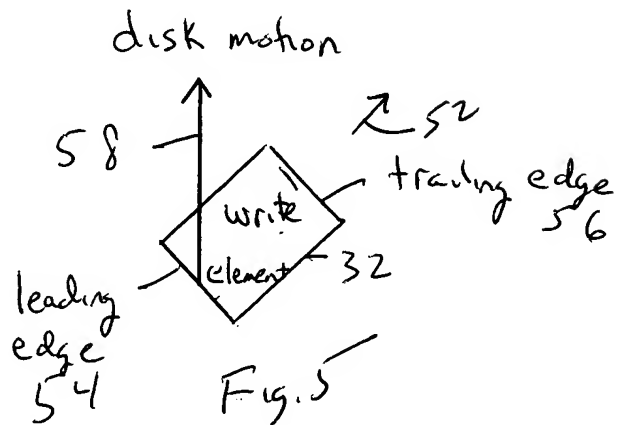 disk motion
58
52
trailing edge
56
write
element
32
leading
edge
54
Fig. 5